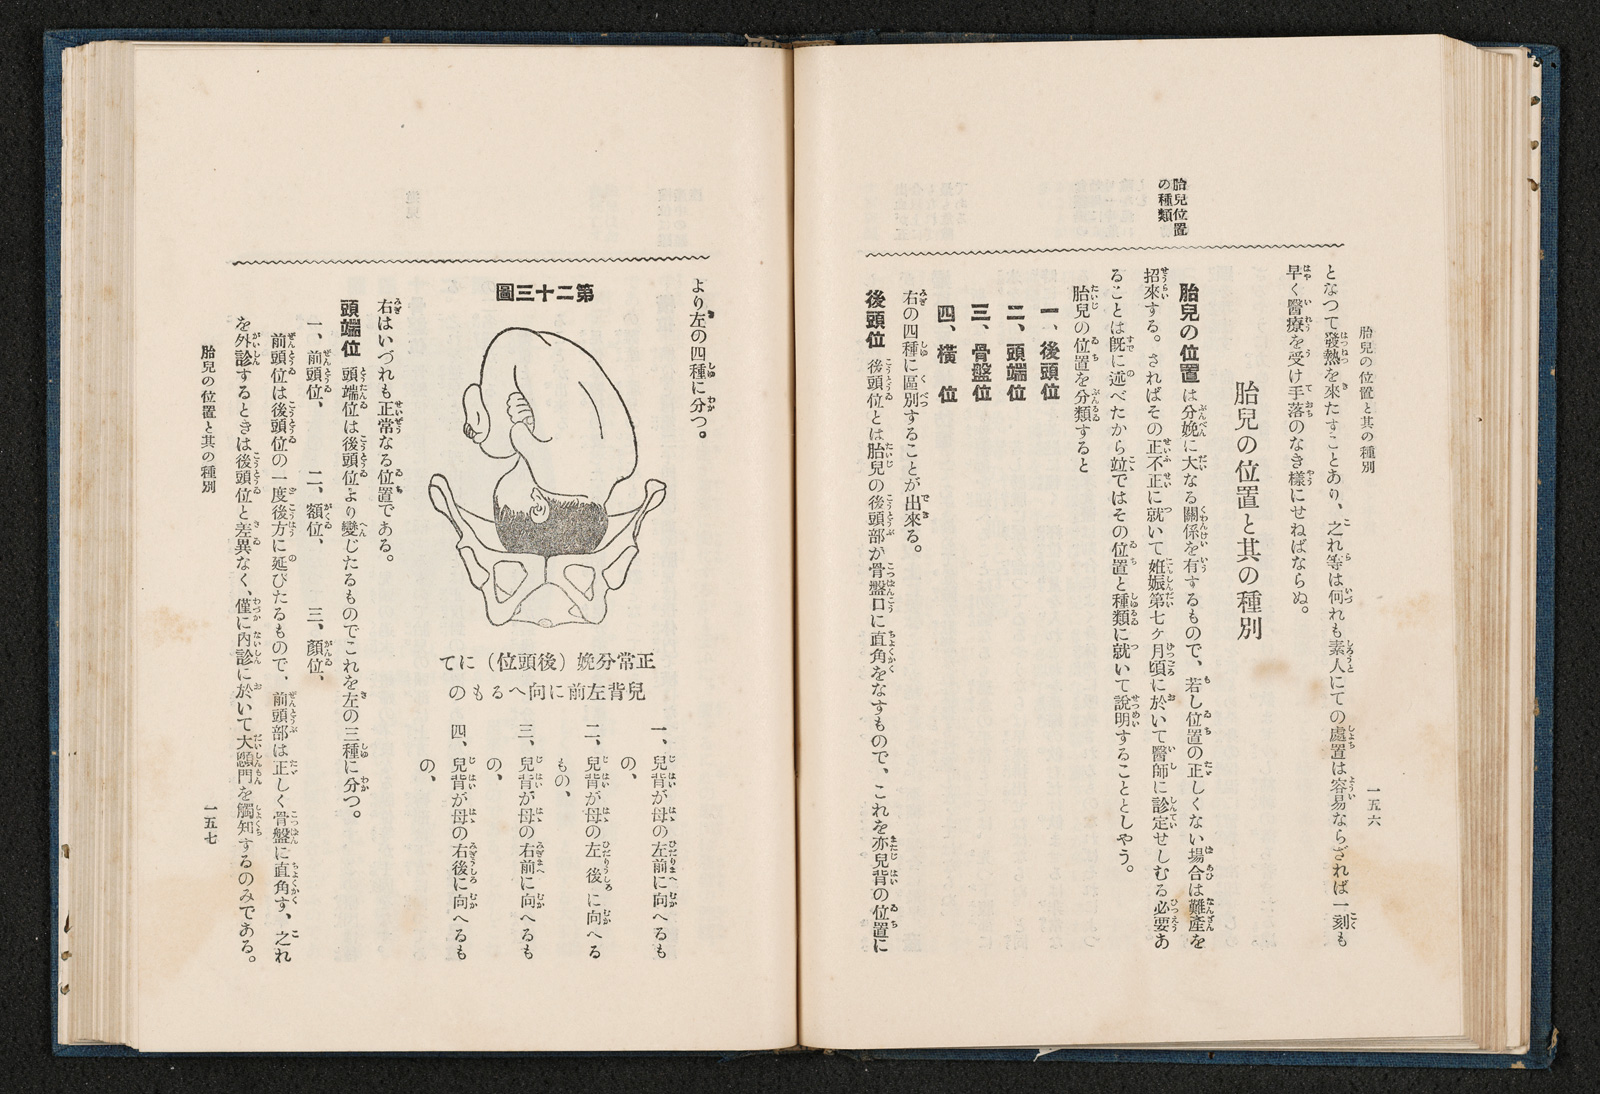 胎兒の位置と其の種別
一五六
胎兒位置
の種類
となつて發熱を來たすことあり、之れ等は何れも素人にての處置は容易ならざれば一刻も
早く醫療を受け手落のなき樣にせねばならぬ。
胎兒の位置と其の種別
胎兒の位置は分娩に大なる關係を有するもので、若し位置の正しくない場合は難產を
招來する。さればその正不正に就いて姙娠第七ヶ月頃に於いて醫師に診定せしむる必要あ
ることは既に述べたから竝ではその位置と種類に就いて說明することとしやう。
胎兒の位置を分類すると
一、後頭位
二、頭端位
三、骨盤位
四、橫位
右の四種に區別することが出來る。
後頭位 後頭位とは胎兒の後頭部が骨盤口に直角をなすもので、これを亦兒背の位置に
より左の四種に分つ。
第二十三圖
正常分娩（後頭位）にて
兒背左前に向へるもの
一、兒背が母の左前に向へるも
の、
二、兒背が母の左後に向へる
もの、
三、兒背が母の右前に向へるも
の、
四、兒背が母の右後に向へるも
の、
右はいづれも正常なる位置である。
頭端位 頭端位は後頭位より變じたるものでこれを左の三種に分つ。
一、前頭位、 二、額位、 三、顏位、
前頭位は後頭位の一度後方に延びたるもので、前頭部は正しく骨盤に直角す、之れ
を外診するときは後頭位と差異なく、僅に內診に於いて大顖門を觸知するのみである。
胎兒の位置と其の種別
一五七